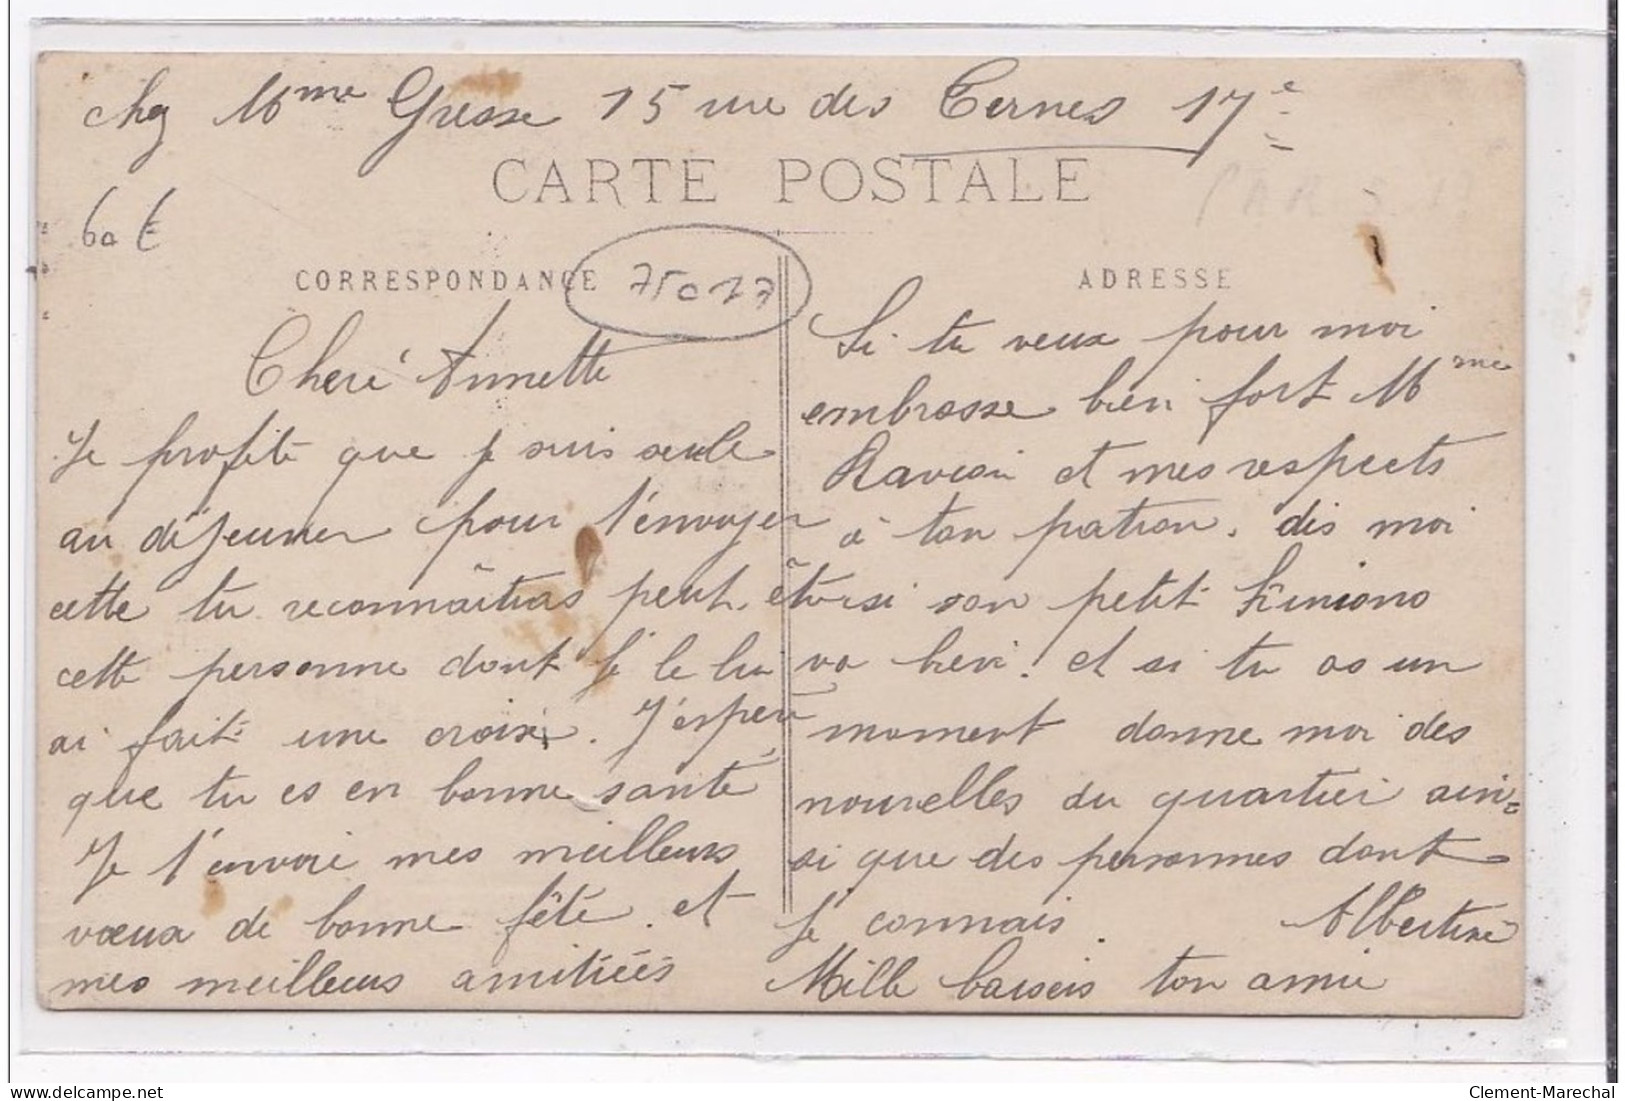 chez Mme Gresse 15 rue des Ternes 17e
CARTE POSTALE
PARIS 17
60 €
CORRESPONDANCE
75017
ADRESSE
Cheré Annette
Je profite que je suis seule
au déjeuner pour t'envoyer
cette tu reconnaîtras peut. être
cette personne dont je le lui
ai fait une croix. J'espère
que tu es en bonne santé
Je t'envoie mes meilleurs
vœux de bonne fête. et
mes meilleurs amitiées
Si tu veux pour moi
embrasse bien fort Mme
et mes respects
à ton patron. dis moi
si son petit Kiniono
va bien! et si tu as un
moment donne moi des
nouvelles du quartier ain=
si que des personnes dont
je connais. Albertine
Mille baisers ton amie
Clement-Marechal
delcampe.net